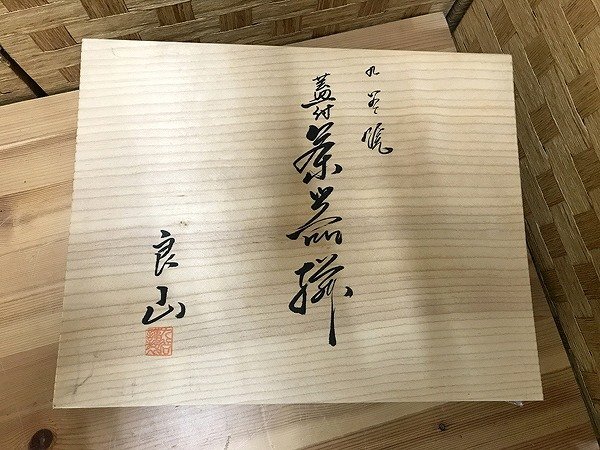 九谷焼
蓋付茶器揃
良山